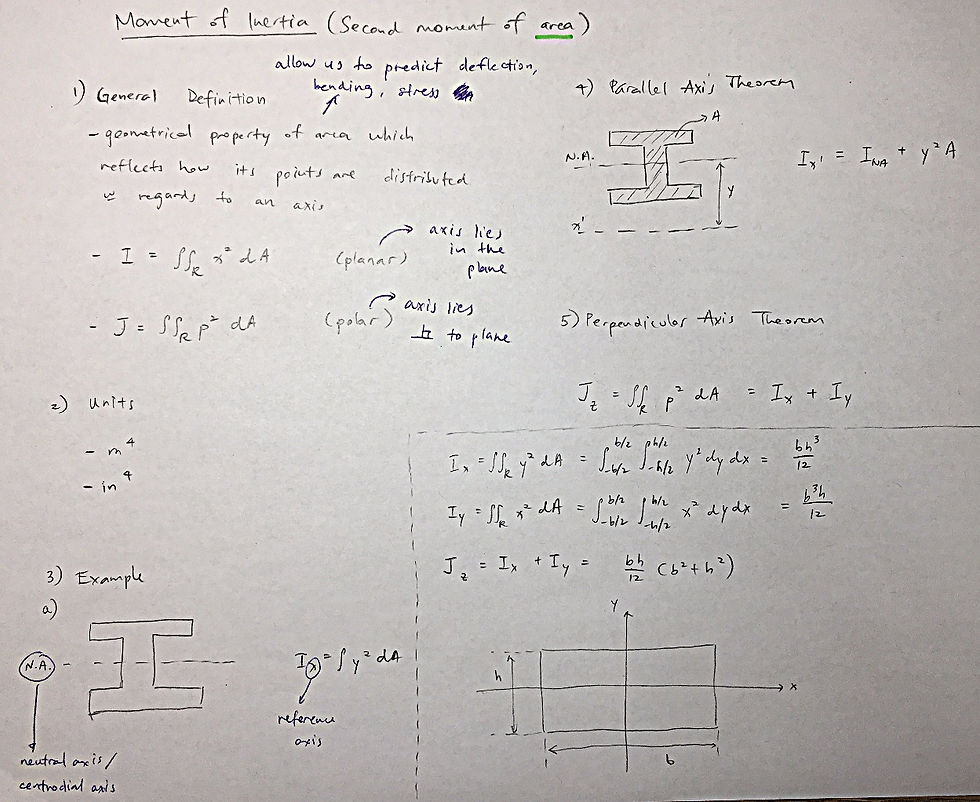 Moment of Inertia (Second moment of area)
allow us to predict deflection,
bending, stress
1) General Definition
- geometrical property of area which
reflects how its points are distributed
w regards to an axis
- I = ∬_R x² dA (planar) axis lies
in the
plane
- J = ∬_R ρ² dA (polar) axis lies
⊥ to plane
2) Units
- m⁴
- in⁴
3) Example
a)
N.A.
neutral axis/
centrodial axis
I_x = ∫ y² dA
reference
axis
4) Parallel Axis Theorem
A
N.A.
y
x'
I_x' = I_NA + y² A
5) Perpendicular Axis Theorem
J_z = ∬_R ρ² dA = I_x + I_y
I_x = ∬_R y² dA = ∫_-b/2^b/2 ∫_-h/2^h/2 y² dy dx = bh³/12
I_y = ∬_R x² dA = ∫_-b/2^b/2 ∫_-h/2^h/2 x² dy dx = b³h/12
J_z = I_x + I_y = bh/12 (b² + h²)
y
h
x
b